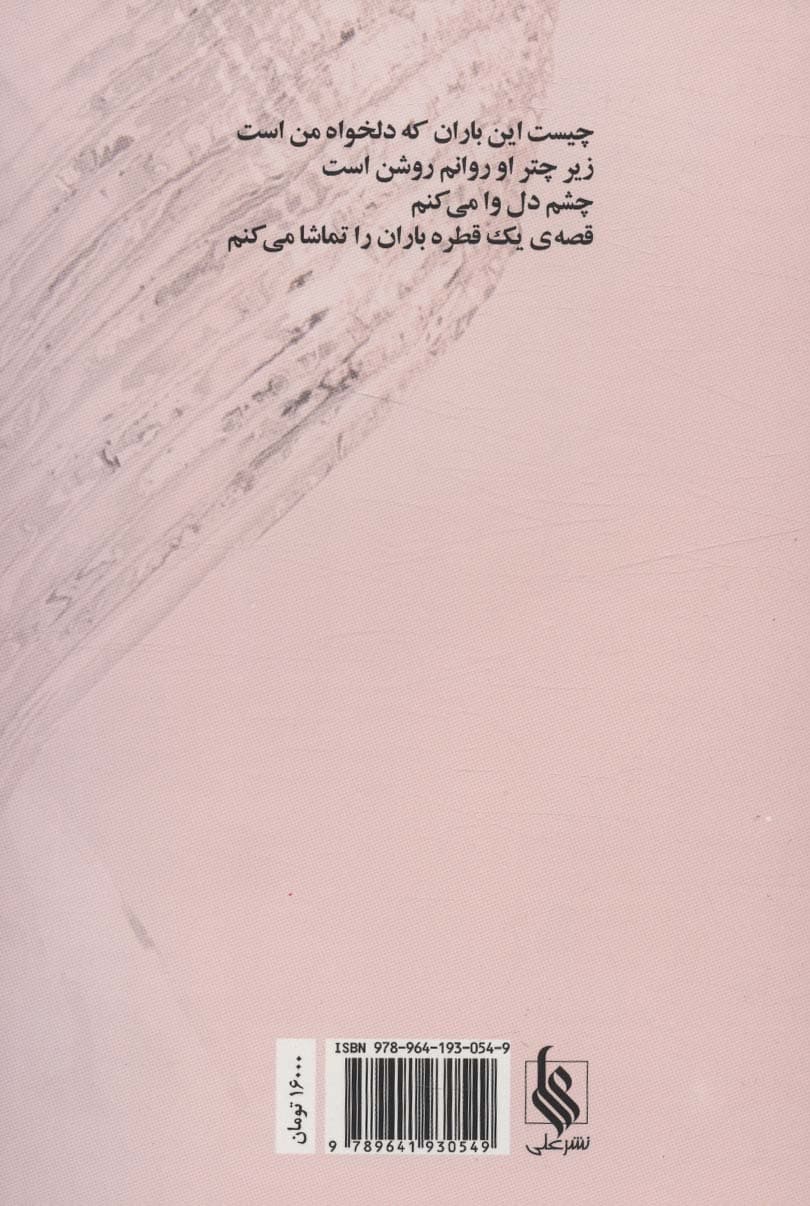 چیست این باران که دلخواه من است
زیر چتر او روانم روشن است
چشم دل وا می‌کنم
قصه‌ی یک قطره باران را تماشا می‌کنم
ISBN 978-964-193-054-9
9 789641 930549
۱۶۰۰۰ تومان
نشر علی